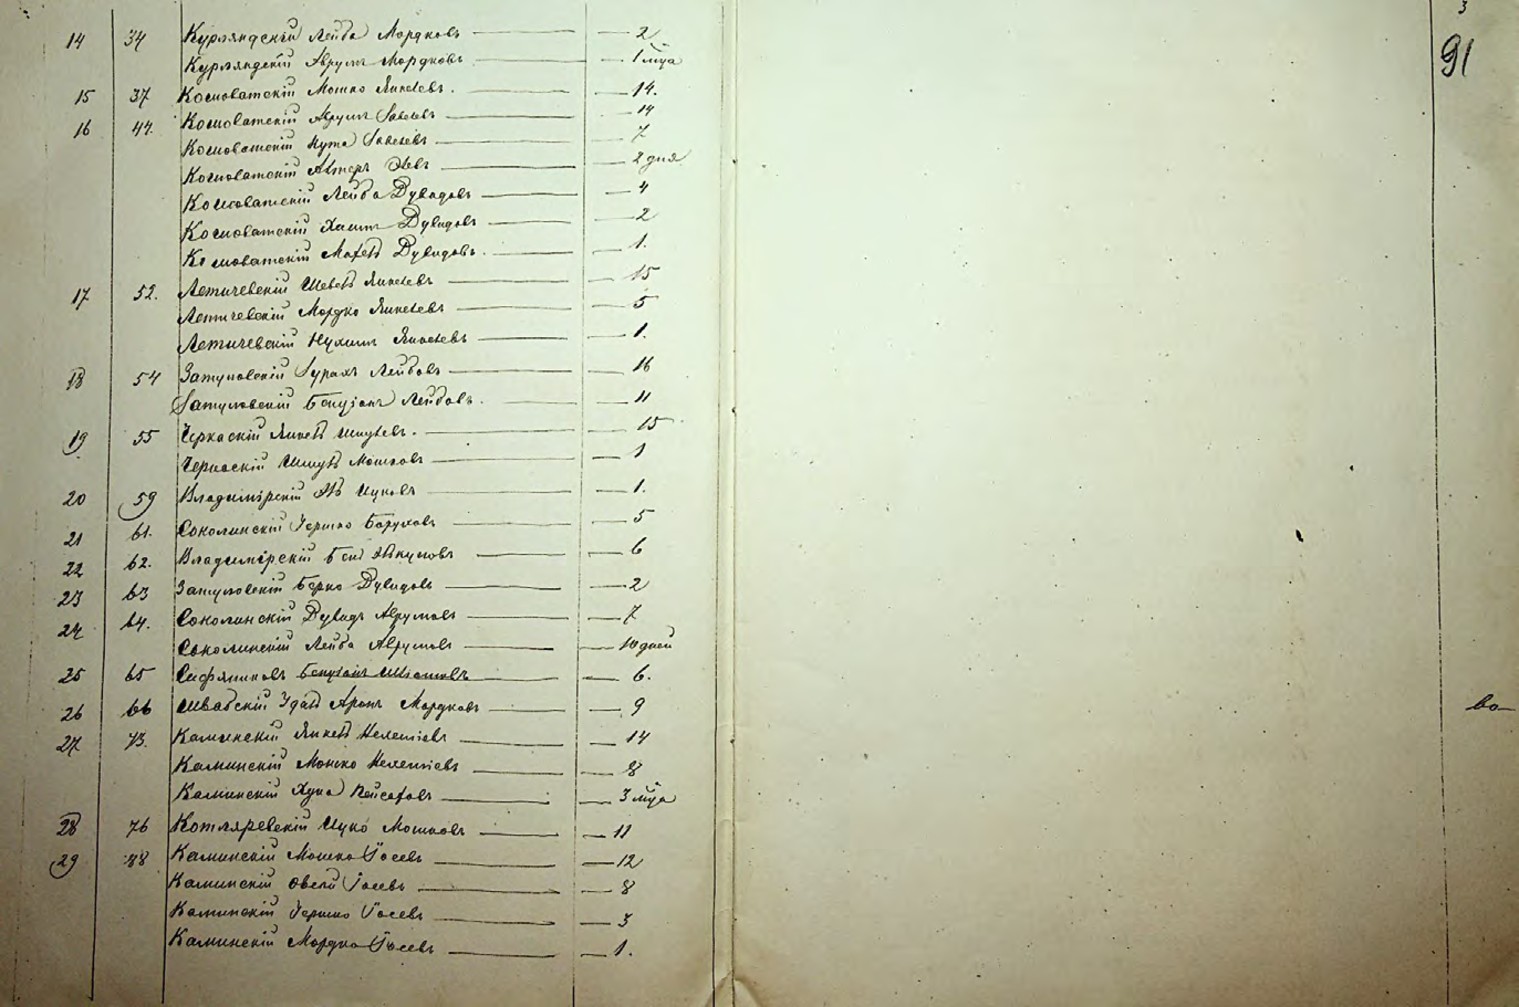 3
91
14 34 Курляндскій Лейба Мордковъ — 2
Курляндскій Аврумъ Мордковъ — 1 м̃ца
15 37 Косноватскій Мошко Янкелевъ. — 14.
16 44. Косноватскій Аврумъ — 14
Косноватскій Нута — 7
Косноватскій Алтеръ — 2 дня
Косноватскій Лейба Дувидовъ — 4
Косноватскій Хаимъ Дувидовъ — 2
Косноватскій Дувидовъ. — 1.
17 52. Летичевскій Янкелевъ — 15
Летичевскій Мордко Янкелевъ — 5
Летичевскій Нухимъ Янкелевъ — 1.
18 54 Затуловскій Сурахъ Лейбовъ — 16
Затуловскій Бенціонъ Лейбовъ. — 11
19 55 Черкаскій Янкель Шмулевъ. — 15
Черкаскій Шмуль Мошковъ — 1
20 59 Владимірскій Ицковъ — 1.
21 61. Соколинскій Гершко Баруховъ — 5
22 62. Владимірскій — 6
23 63 Затуловскій Берко Дувидовъ — 2
24 64. Соколинскій Дувидъ Аврумовъ — 7
Соколинскій Лейба Аврумовъ — 10 дней
25 65 Бенціонъ — 6.
26 66 Швабскій Аронъ Мордковъ — 9
27 73. Каминскій Янкель Нехемьевъ — 14
Каминскій Мошко Нехемьевъ — 8
Каминскій Хуна Пейсаховъ — 3 м̃ца
28 76 Котляревскій Ицко Мошковъ — 11
29 88 Каминскій Мошко Іосевъ — 12
Каминскій Овсей Іосевъ — 8
Каминскій Гершко Іосевъ — 3
Каминскій Мордко Іосевъ — 1.
во—